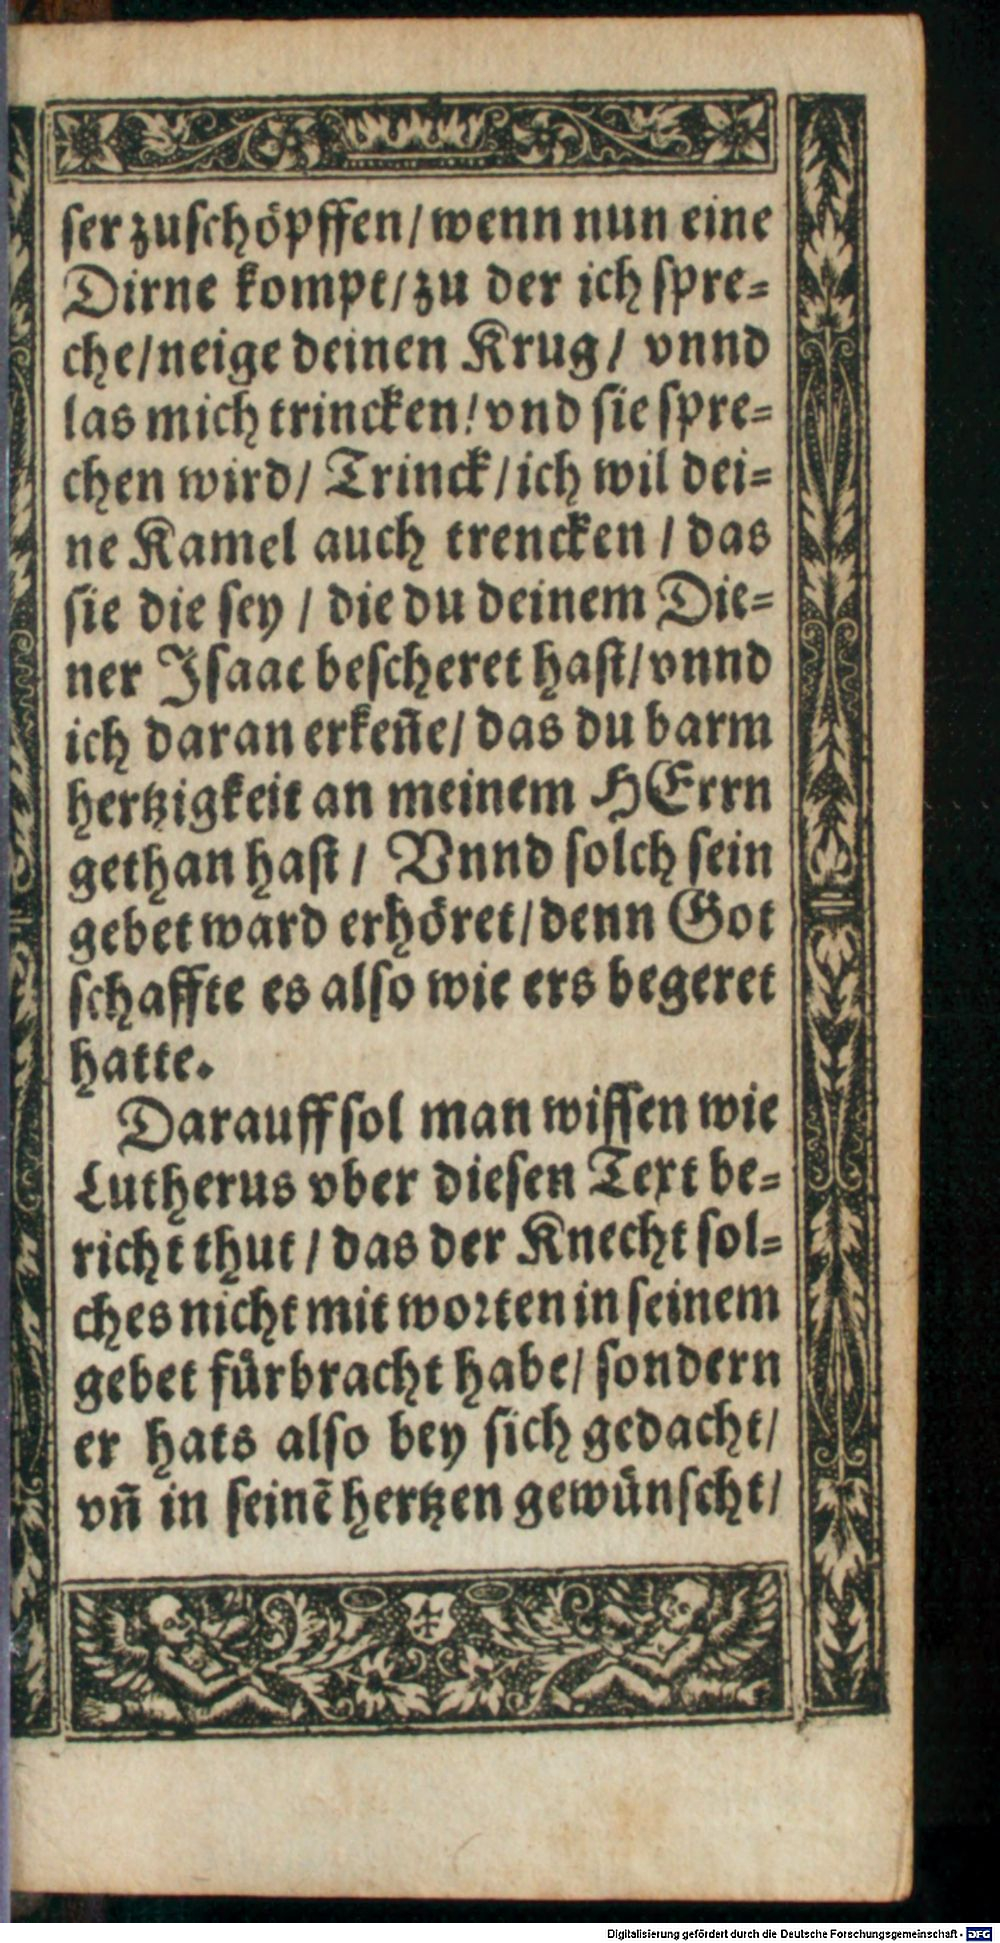 ser zuschöpffen/ wenn nun eine
Dirne kompt/ zu der ich spre=
che/ neige deinen Krug/ vnnd
las mich trincken/ vnd sie spre=
chen wird/ Trinck/ ich wil dei=
ne Kamel auch trencken / das
sie die sey / die du deinem Die=
ner Isaac bescheret hast/ vnnd
ich daran erkeñe/ das du barm
hertzigkeit an meinem HErrn
gethan hast / Vnnd solch sein
gebet ward erhöret/ denn Got
schaffte es also wie ers begeret
hatte.
Darauff sol man wissen wie
Lutherus vber diesen Text be=
richt thut / das der Knecht sol=
ches nicht mit worten in seinem
gebet fürbracht habe/ sondern
er hats also bey sich gedacht/
vñ in seinẽ hertzen gewünscht/
Digitalisierung gefördert durch die Deutsche Forschungsgemeinschaft - DFG